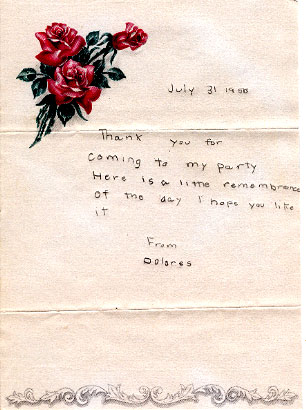 July 31 1950
Thank you for
coming to my party
Here is a little remembrence
of the day I hope you like
it
From
Dolores